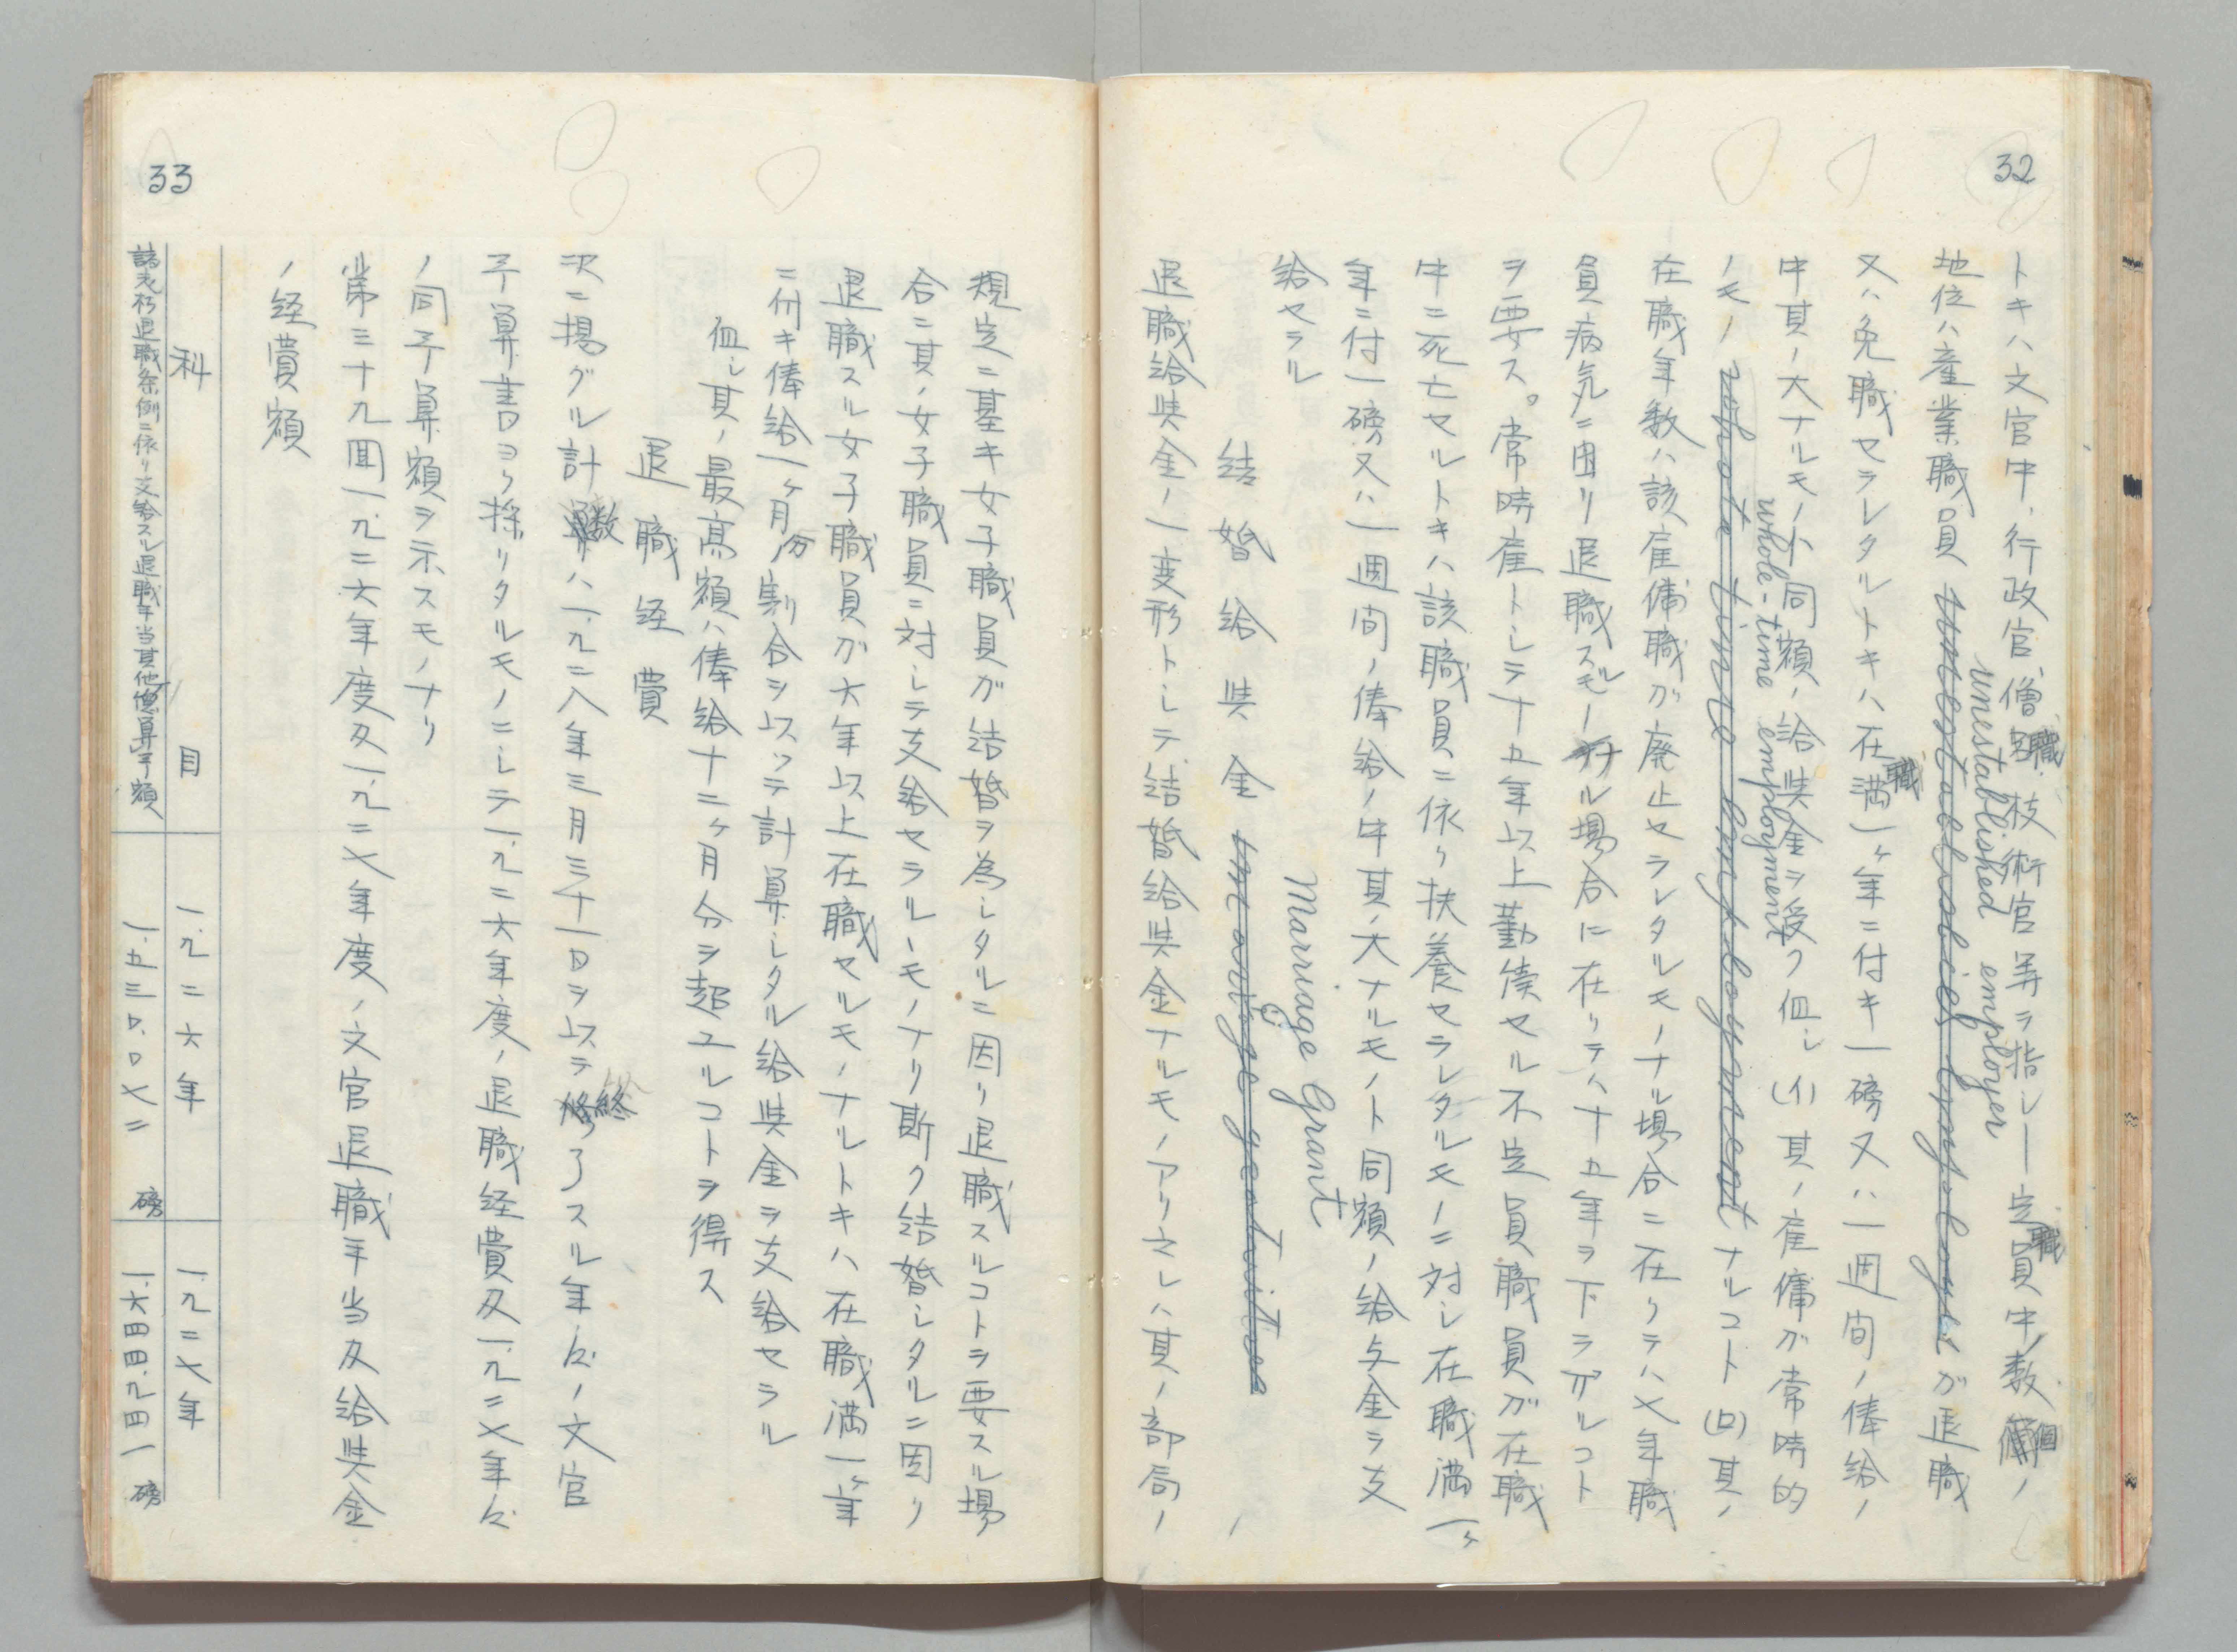 32
トキハ文官中、行政官、僧職、技術官等ヲ指シ一定職員中、数個ノ
地位ハ産業職員 unestablished employer ガ退職
又ハ免職セラレタルトキハ在職満一ヶ年ニ付キ一磅又ハ一週間ノ俸給ノ
中其ノ大ナルモノト同額ノ給与金ヲ受ク但シ(イ)其ノ雇傭ガ常時的
ノモノ whole-time employment ナルコト(ロ)其ノ
在職年数ハ該雇傭職ガ廃止セラレタルモノナル場合ニ在リテハ七年職
員病気ニ因リ退職スルモノナル場合に在リテハ十五年ヲ下ラザルコト
ヲ要ス。常時雇トシテ十五年以上勤続セル不定員職員ガ在職
中ニ死亡セルトキハ該職員ニ依リ扶養セラレタルモノニ対シ在職満一ヶ
年ニ付一磅又ハ一週間ノ俸給ノ中其ノ大ナルモノト同額ノ給与金ヲ支
給セラル
結婚給与金 Marriage Grant
退職給与金ノ一変形トシテ結婚給与金ナルモノアリ之レハ其ノ部局ノ
規定ニ基キ女子職員ガ結婚ヲ為シタルニ因リ退職スルコトヲ要スル場
合ニ其ノ女子職員ニ対シテ支給セラルヽモノナリ斯ク結婚シタルニ因リ
退職スル女子職員ガ六年以上在職セルモノナルトキハ在職満一ヶ年
ニ付キ俸給一ヶ月分ノ割合ヲ以ッテ計算シタル給与金ヲ支給セラル
但シ其ノ最高額ハ俸給十二ヶ月分ヲ超ユルコトヲ得ス
退職経費
次ニ掲グル計数ハ一、九二八年三月三十一日ヲ以ステ終了スル年度ノ文官
予算書ヨリ採リタルモノニシテ一、九二六年度ノ退職経費及一、九二七年度
ノ同予算額ヲ示スモノナリ
第三十九回一、九二六年度及一、九二七年度ノ文官退職手当及給与金
ノ経費額
33
科 目 一、九二六年 一、九二七年
諸老朽退職条例ニ依リ支給スル退職手当其他予算額 一、五三〇、〇七二磅 一、六四四、九四一磅